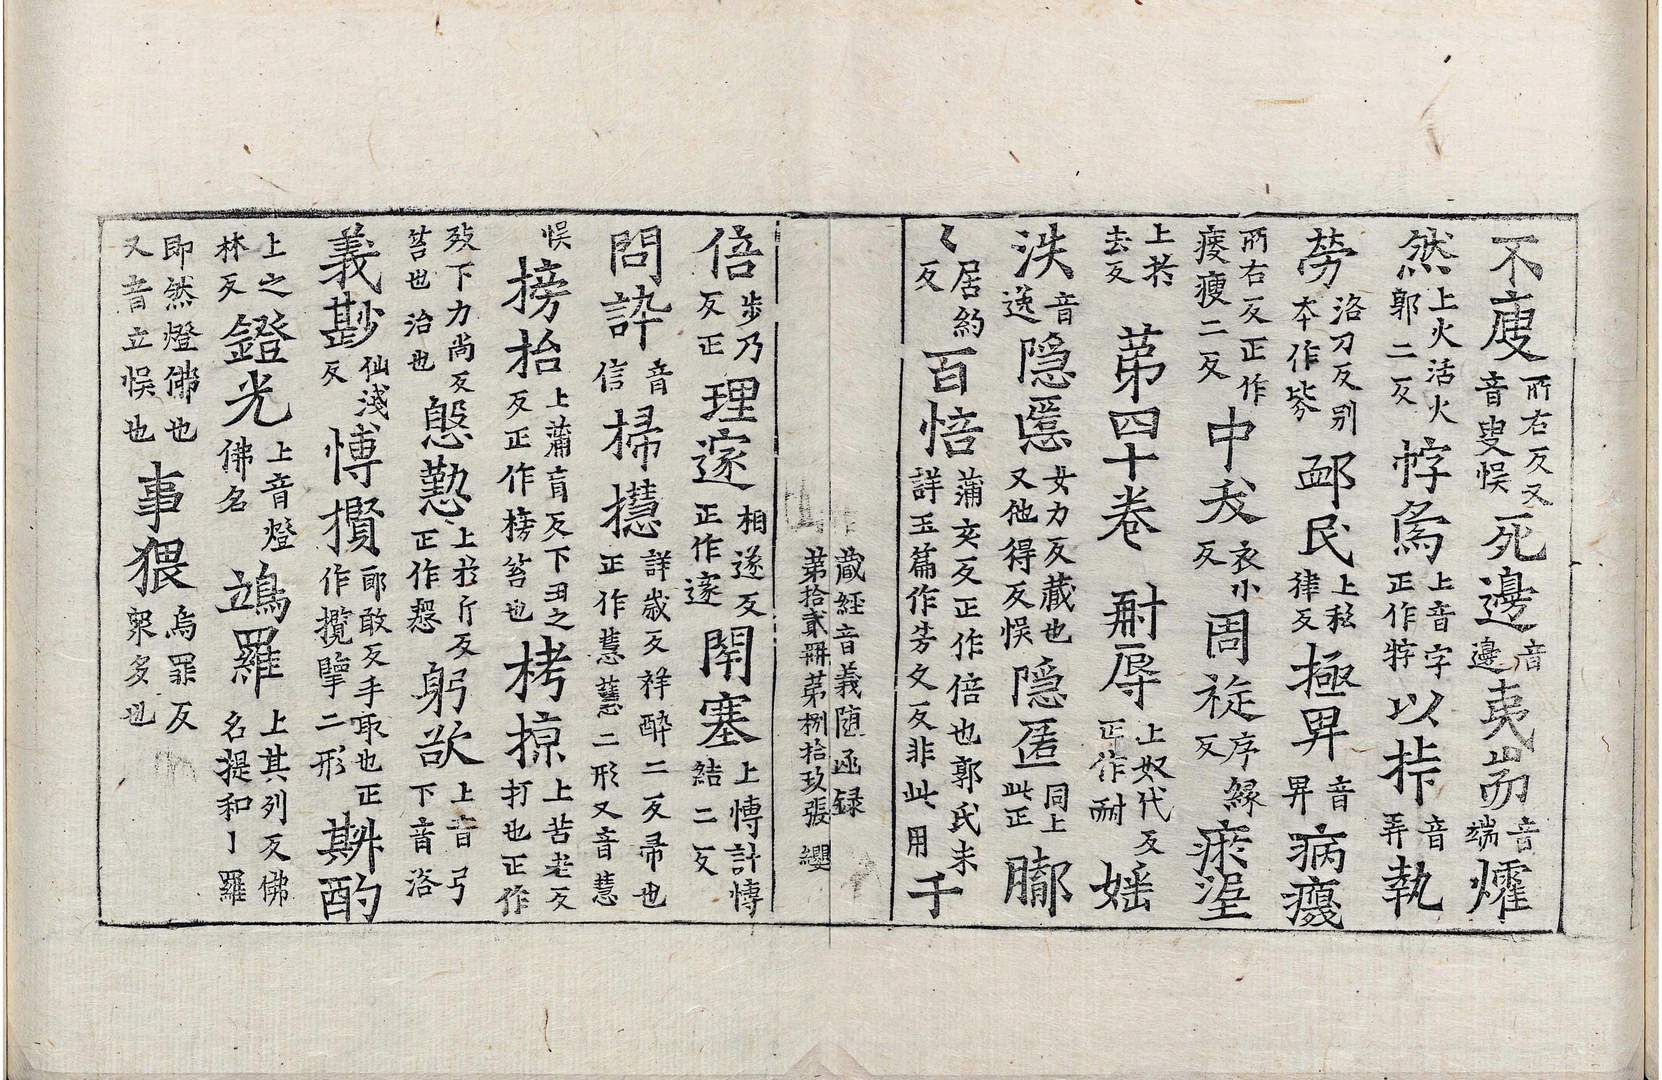 不廋所右反又音叟悮死邊音邊夷耑音端爟
然上火活火郭二反悖爲上音字正作牸以挊音弄執
蒡洛刀反别本作𣬈邮民上私律反極畀音畀病癈
所右反正作㾭瘦二反中夭衣小反周旋序緣反瘀湼
上於去反 苐四十卷 耐辱上奴代反正作耐婬
泆音逸隱慝女力反藏也又他得反悮隱匿同上此正䐧
く居約反百悎蒲亥反正作倍也郭氏未詳玉篇作芳文反非此用千
藏經音義随函録
苐拾貳冊苐捌拾玖張 纓
倍步乃反正理䆳相遂反正作邃閇塞上愽計愽結二反
問訊音信掃𢹂詳歲反祥醉二反帚也正作篲䔹二形又音慧
悮搒抬上蒲盲反下丑之反正作榜笞也栲掠上苦老反打也正作
㱾下力尚反笞也治也慇懃上於斤反正作慇躬欲上音弓下音浴
義尠仙淺反愽攬郎敢反手取也正作攬擥二形斟酌
上之林反鐙光上音燈佛名鴗羅上其列反佛名提和丨羅
即然燈佛也又音立悮也事猥烏罪反衆多也